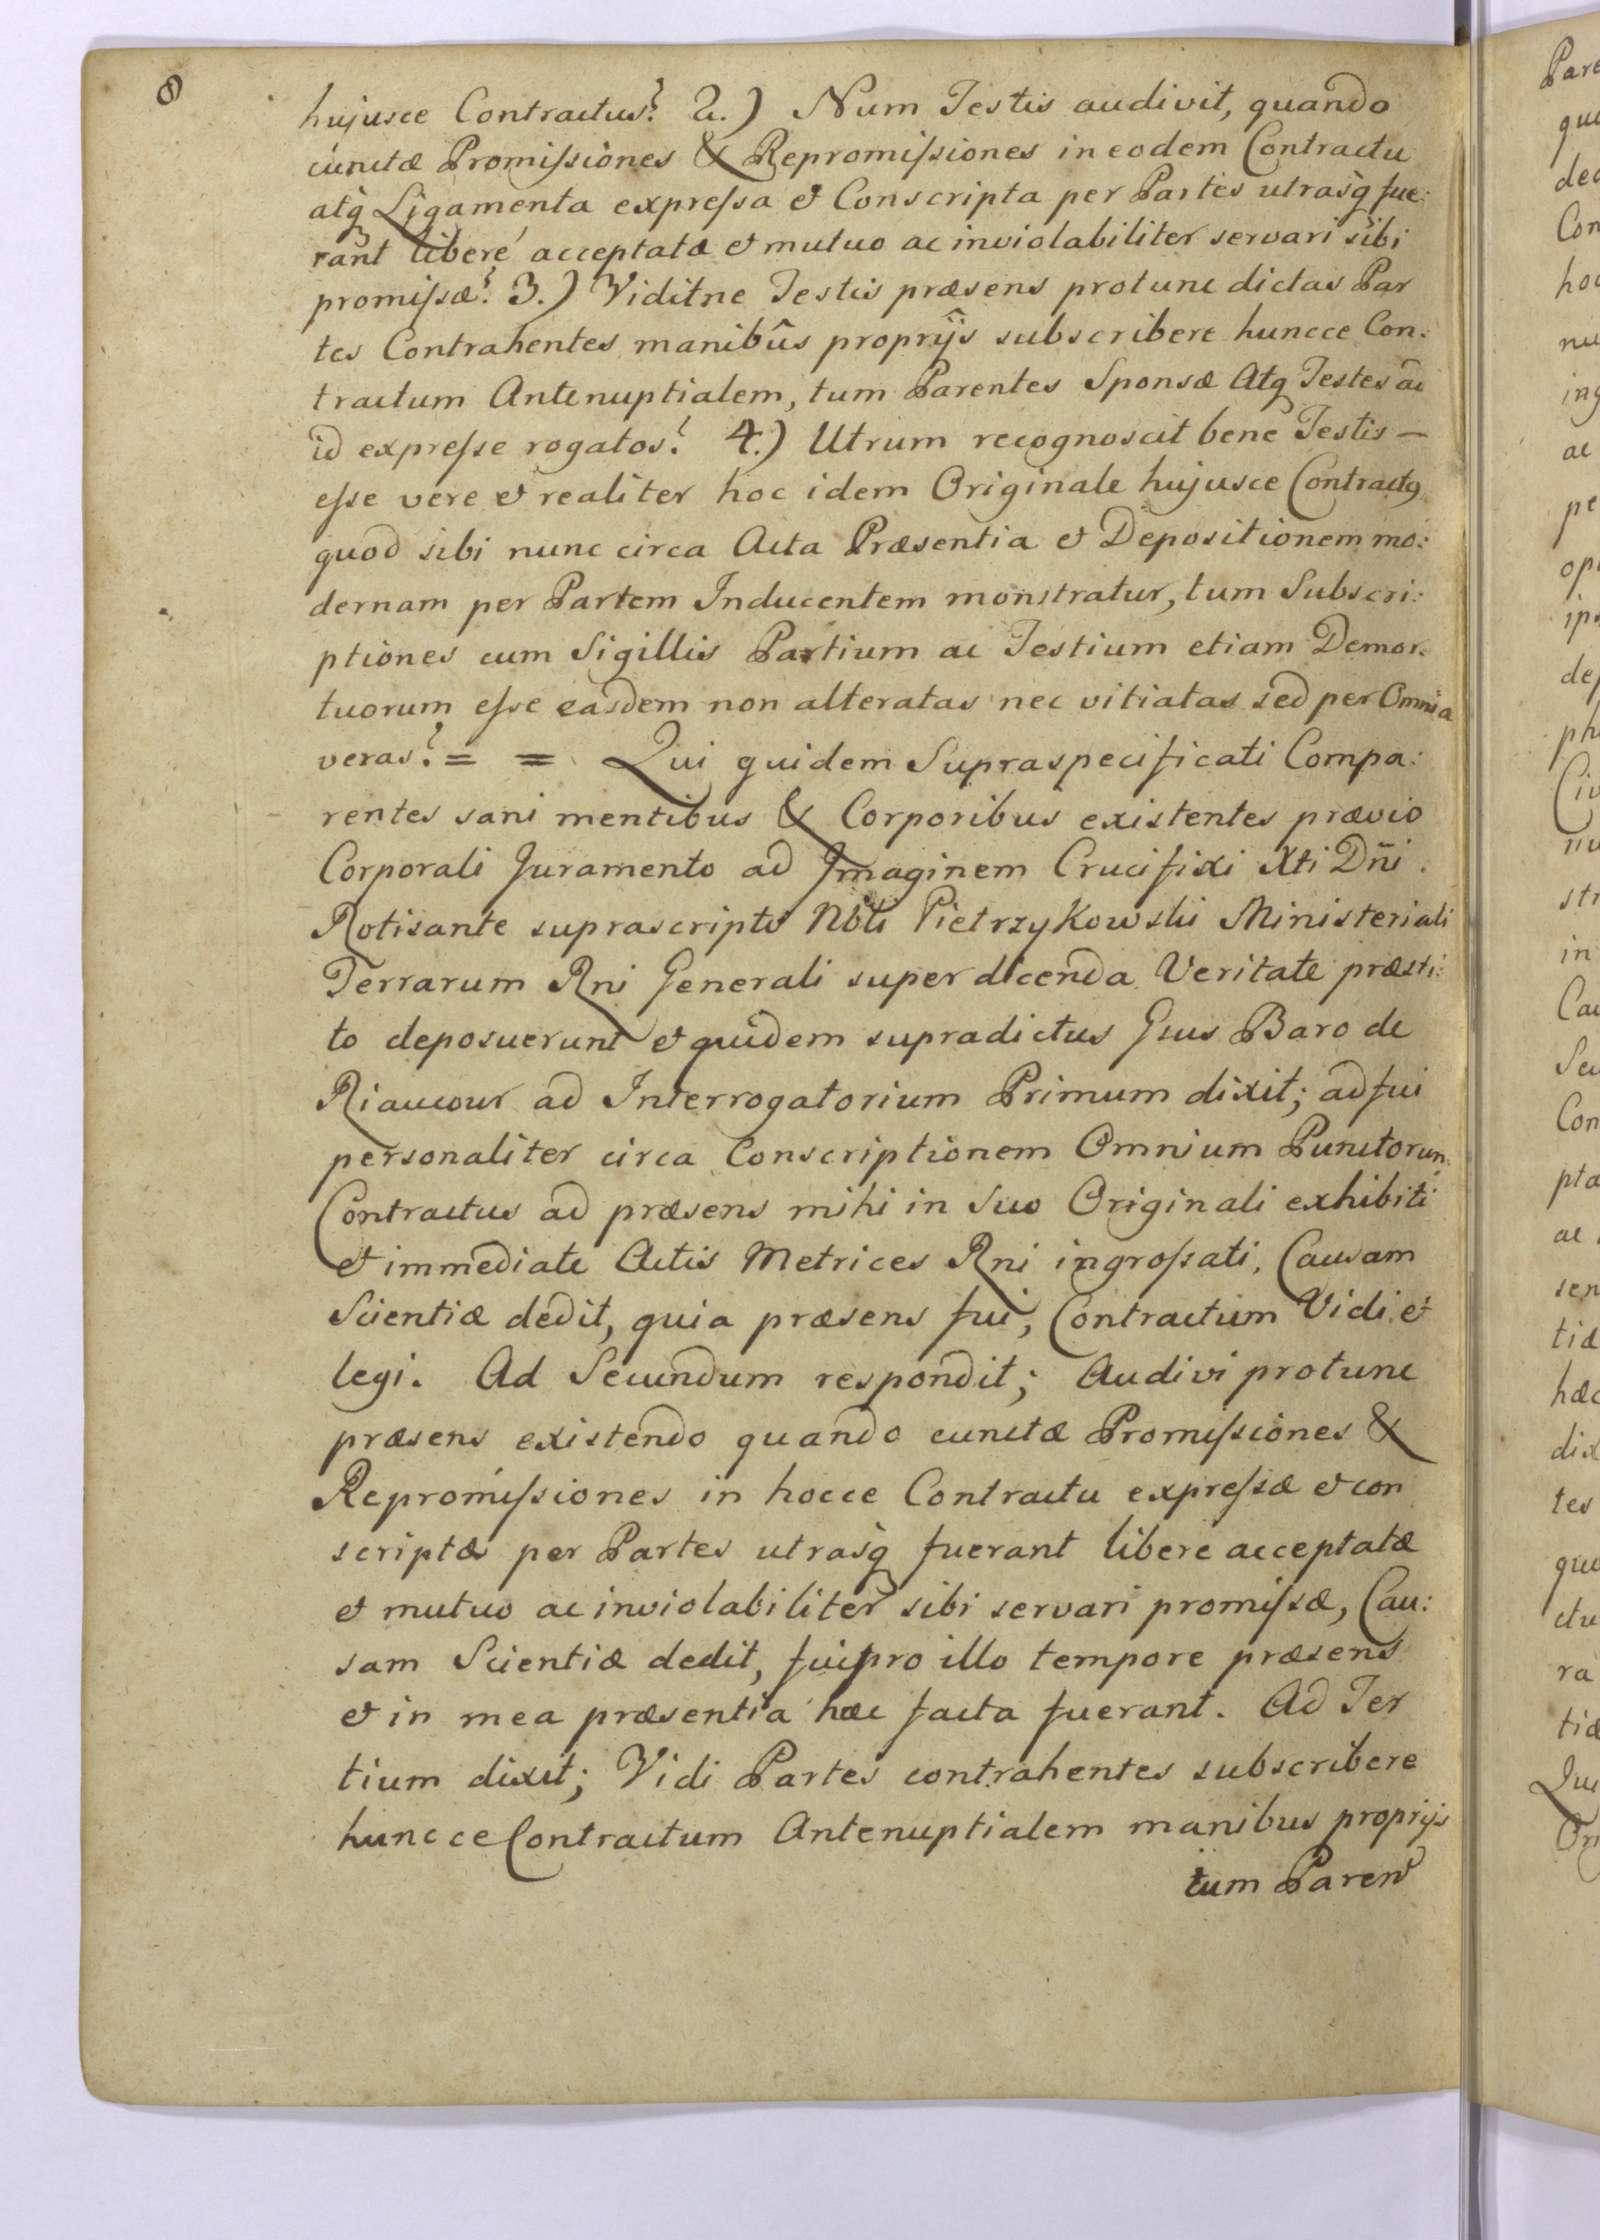 8
hujusce Contractus? 2.) Num Testis audivit, quando
cunctæ Promiſsiones & Repromiſsiones in eodem Contractu
atq̃ Ligamenta expreſsa et Conscripta per Partes utrasq̃ fue:
rant liberé acceptatæ et mutuo ac inviolabiliter servari sibi
promiſsæ? 3.) Viditne Testis præsens protunc dictas Par
tes Contrahentes manibûs proprijs subscribere huncce Con:
tractum Antenuptialem, tum Parentes Sponsæ Atq̃ Testes ad
id expreſse rogatos? 4.) Utrum recognoscit bene Testis —
eſse vere et realiter hoc idem Originale hujusce Contractus
quod sibi nunc circa Acta Præsentia et Depositionem mo:
dernam per Partem Inducentem monstratur, tum Subscri:
ptiones cum Sigillis Partium ac Testium etiam Demor:
tuorum eſse easdem non alteratas nec vitiatas sed per Omnia
veras? = = Qui quidem Supraspecificati Compa:
rentes sani mentibus & Corporibus existentes prævio
Corporali Juramento ad Imaginem Crucifixi Xti Dñi.
Rotisante suprascripto Nbli Pietrzykowski Ministeriali
Terrarum Rni Generali super dicenda Veritate præsti:
to deposuerunt et quidem supradictus Gnus Baro de
Riaucour ad Interrogatorium Primum dixit; adfui
personaliter circa Conscriptionem Omnium Punctorum
Contractus ad præsens mihi in Suo Originali exhibiti
et immediate Actis Metrices Rni ingroſsati. Causam
Scientiæ dedit, quia præsens fui, Contractum Vidi et
legi. Ad Secundum respondit; Audivi protunc
præsens existendo quando cunctæ Promiſsiones &
Repromiſsiones in hocce Contractu expreſsæ et con
scriptæ per Partes utrasq̃ fuerant libere acceptatæ
et mutuo ac inviolabiliter sibi servari promiſsæ, Cau:
sam Scientiæ dedit, fui pro illo tempore præsens
et in mea præsentia hæc facta fuerant. Ad Ter
tium dixit; Vidi Partes contrahentes subscribere
huncce Contractum Antenuptialem manibus proprijs
tum Paren